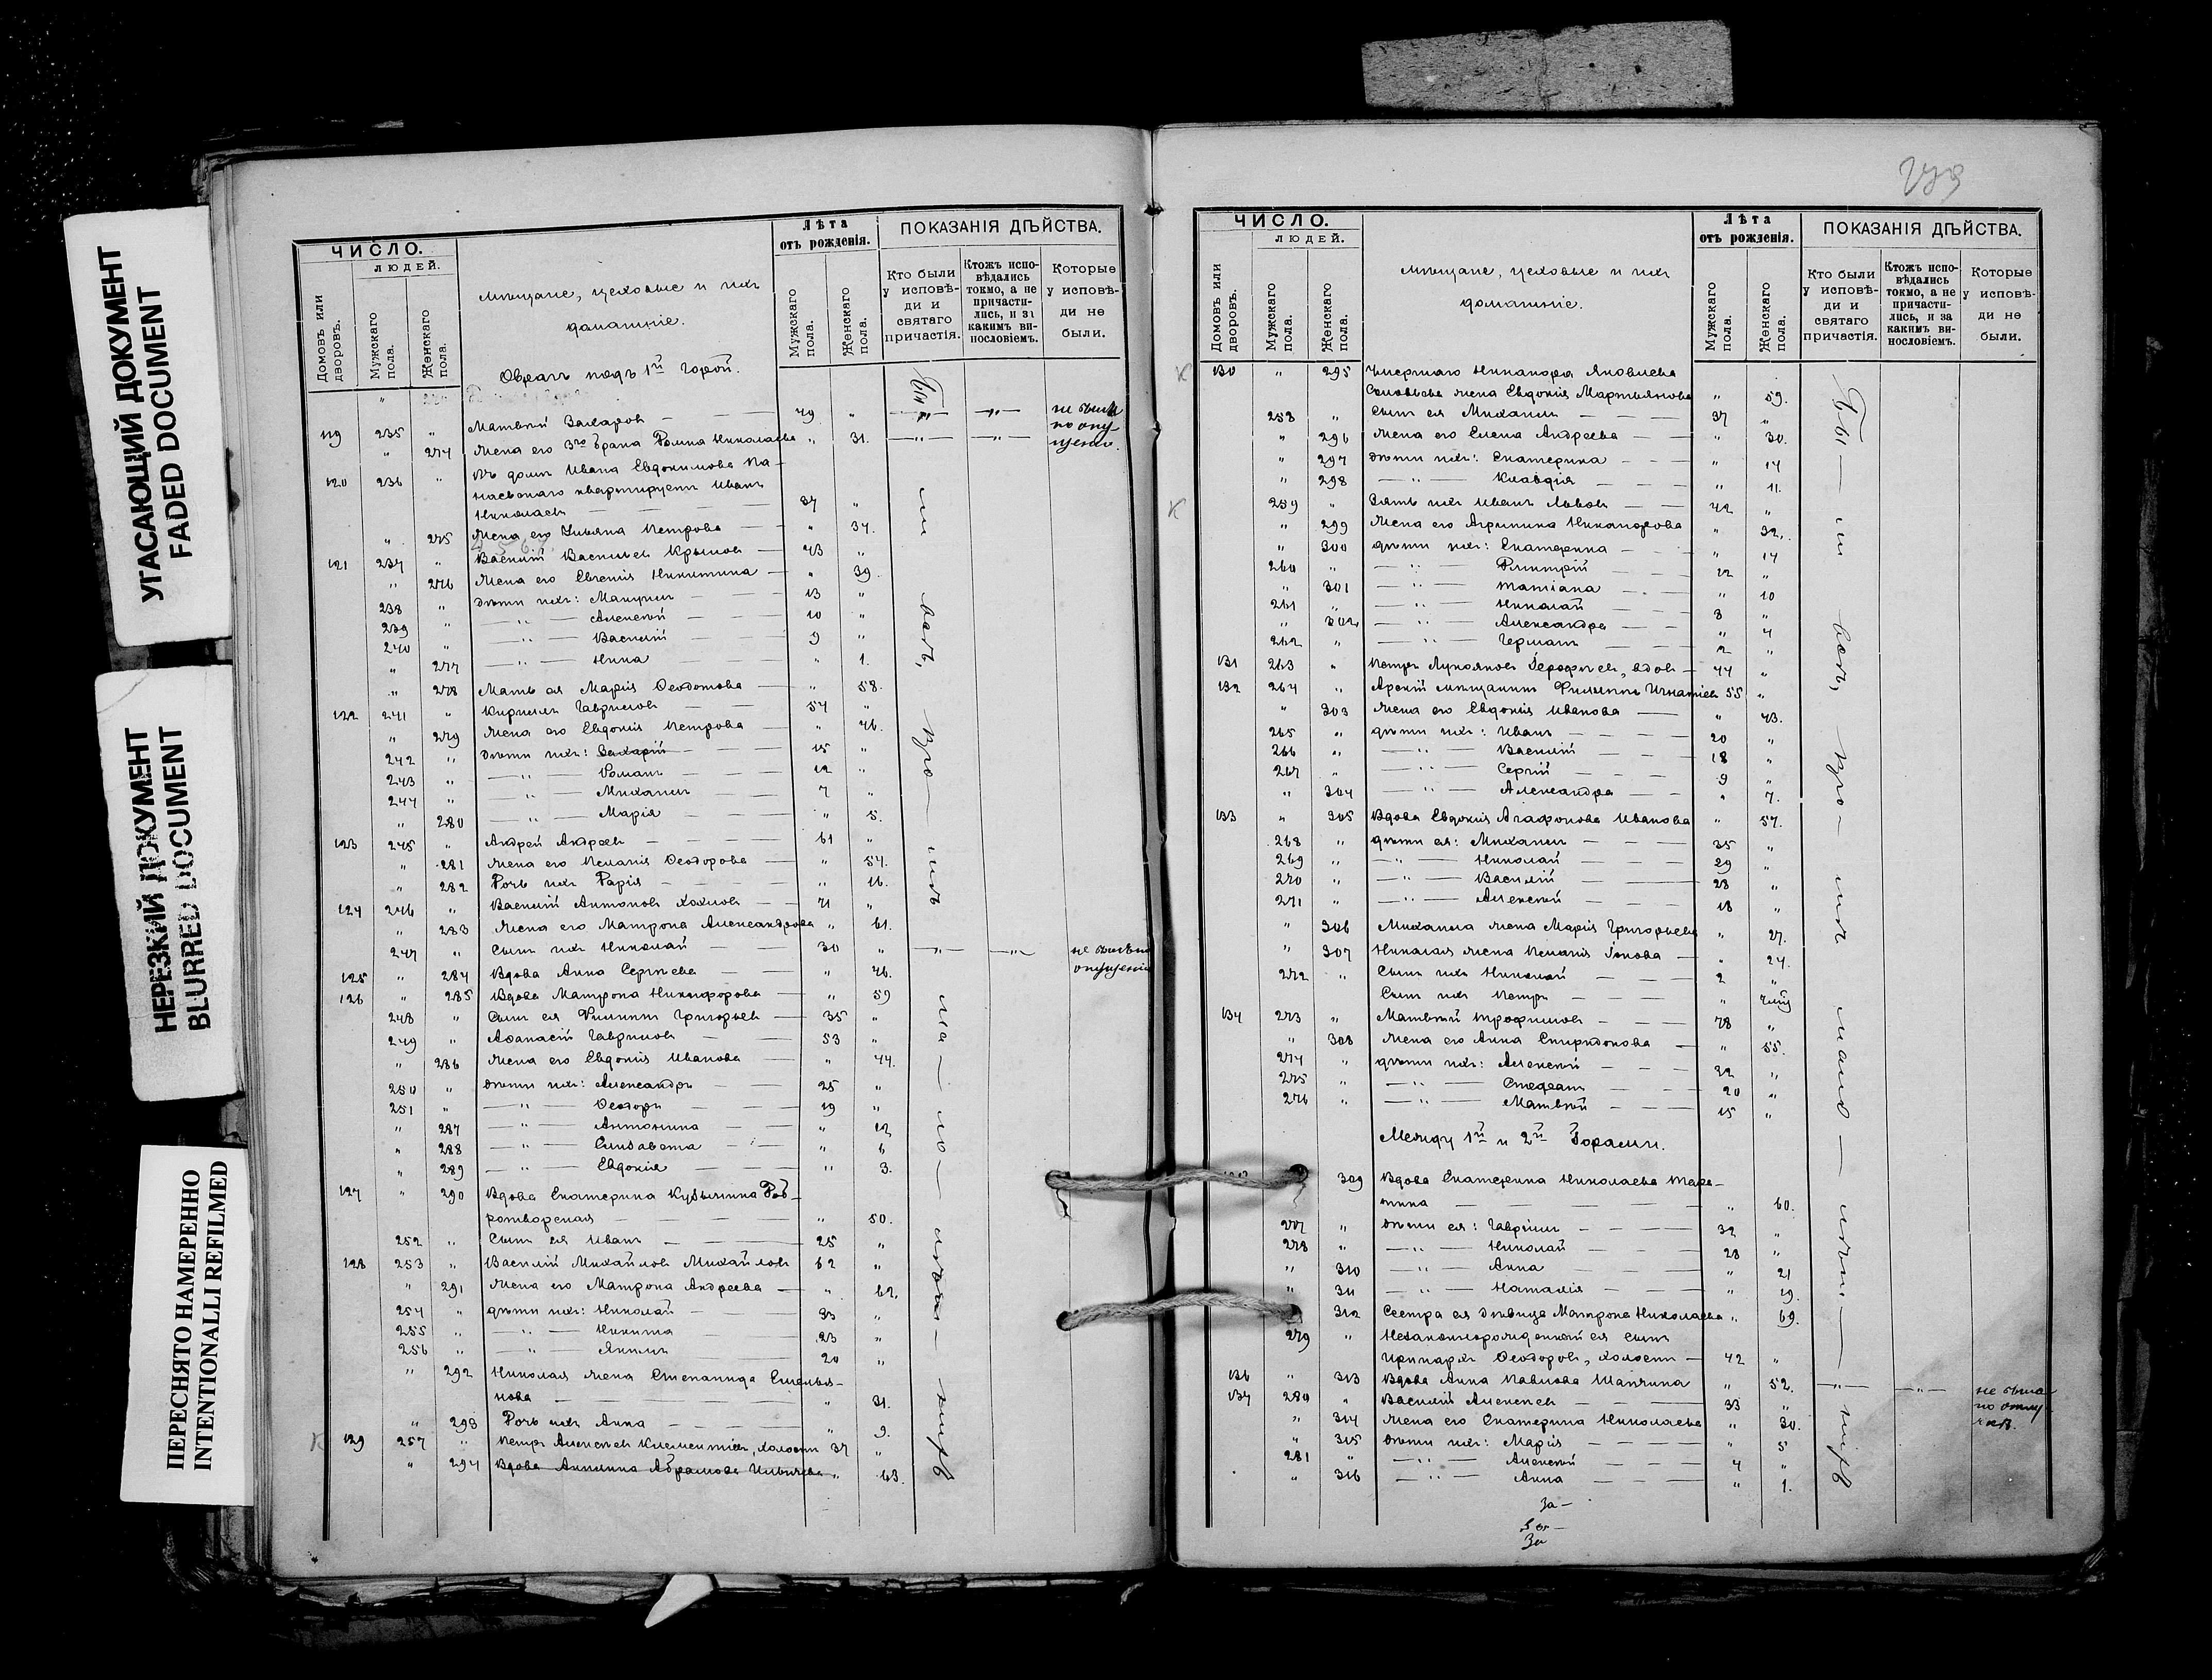 УГАСАЮЩИЙ ДОКУМЕНТ
FADED DOCUMENT
НЕРЕЗКИЙ ДОКУМЕНТ
BLURRED DOCUMENT
ПЕРЕСНЯТО НАМЕРЕННО
INTENTIONALLI REFILMED
ЧИСЛО.
ЛЮДЕЙ.
Домовъ или дворовъ.
Мужскаго пола.
Женскаго пола.
Мѣщане, цеховые и ихъ
домашніе.
Лѣта
отъ рожденія.
Мужскаго пола.
Женскаго пола.
ПОКАЗАНІЯ ДѢЙСТВА.
Кто были
у исповѣ-
ди и
святаго
причастія.
Ктожъ испо-
вѣдались
токмо, а не
причасти-
лись, и за
какимъ ви-
нословіемъ.
Которые
у исповѣ-
ди не
были.
Оврагъ подъ 1й Горой.
119 235 " Матвѣй Захаровъ 79 "
" 274 Жена его 3го брака Домна Николаева " 31.
120 236 " Въ домѣ Ивана Евдокимова Па-
наевскаго квартируетъ Иванъ
Николаевъ 37 "
" 275 Жена его Ульяна Петрова " 34.
121 237 " Василій Васильевъ Крыловъ 43 "
" 276 Жена его Евгенія Никитина " 39.
238 " дѣти ихъ: Макаръ 13 "
239 " Алексѣй 10 "
240 " Василій 9 "
" 277 Нина " 1.
" 278 Мать ея Марія Ѳеодотова " 58.
122 241 " Кириллъ Гавриловъ 54 "
" 279 Жена его Евдокія Петрова " 46.
242 " дѣти ихъ: Захарій 15 "
243 " Романъ 12 "
244 " Михаилъ 7 "
" 280 Марія " 5.
123 245 " Андрей Андреевъ 61 "
" 281 Жена его Пелагія Ѳеодорова " 54.
" 282 Дочь ихъ Дарія " 16.
124 246 " Василій Антоновъ 71 "
" 283 Жена его Матрона Александрова " 61.
247 " Сынъ ихъ Николай 30 "
125 " 284 Вдова Анна Сергѣева " 46.
126 " 285 Вдова Матрона Никифорова " 59
248 " Сынъ ея Филиппъ Григорьевъ 35 "
249 " Аѳанасій Гавриловъ 53 "
" 286 Жена его Евдокія Иванова " 44.
250 " дѣти ихъ: Александръ 25 "
251 " Ѳеодоръ 19 "
" 287 Антонина " 12
" 288 Елисавета " 6
" 289 Евдокія " 3.
127 " 290 Вдова Екатерина Кузьмина Доб-
ротворская " 50.
252 " Сынъ ея Иванъ 25 "
128 253 " Василій Михайловъ Михайловъ 62 "
" 291 Жена его Матрона Андреева " 62.
254 " дѣти ихъ: Николай 33 "
255 " Никита 23 "
256 " Акимъ 20 "
" 292 Николая жена Степанида Емелья-
нова " 31.
" 293 Дочь ихъ Анна " 9.
129 257 " Петръ Алексѣевъ Климентьевъ, холостъ 37 "
" 294 Вдова Акилина Абрамова Ильичева " 63.
ЧИСЛО.
ЛЮДЕЙ.
Домовъ или дворовъ.
Мужскаго пола.
Женскаго пола.
Мѣщане, цеховые и ихъ
домашніе.
Лѣта
отъ рожденія.
Мужскаго пола.
Женскаго пола.
ПОКАЗАНІЯ ДѢЙСТВА.
Кто были
у исповѣ-
ди и
святаго
причастія.
Ктожъ испо-
вѣдались
токмо, а не
причасти-
лись, и за
какимъ ви-
нословіемъ.
Которые
у исповѣ-
ди не
были.
130 " 295 Умершаго Никанора Яковлева
Соловьева жена Евдокія Мартьянова " 59.
258 " Сынъ ея Михаилъ 37 "
" 296 Жена его Елена Андреева " 30.
" 297 дѣти ихъ: Екатерина " 14
" 298 Клавдія " 11.
259 " Зять ихъ Иванъ Львовъ 42 "
" 299 Жена его Агрипина Никанорова " 32.
" 300 дѣти ихъ: Екатерина " 14
260 " Димитрій 12 "
" 301 Татіана " 10
261 " Николай 8 "
" 302 Александра " 4
262 " Германъ 2 "
131 263 " Петръ Лукояновъ Ерофѣевъ, вдовъ 44 "
132 264 " Арскій мѣщанинъ Филиппъ Игнатіевъ 55 "
" 303 Жена его Евдокія Иванова " 43.
265 " дѣти ихъ: Иванъ 20 "
266 " Василій 18 "
267 " Сергій 9 "
" 304 Александра " 7.
133 " 305 Вдова Евдокія Агафонова Иванова " 57.
268 " дѣти ея: Михаилъ 35 "
269 " Николай 29 "
270 " Василій 23 "
271 " Алексѣй 18 "
" 306 Михаила жена Марія Григорьева " 27.
" 307 Николая жена Пелагія Іонова " 24.
272 " Сынъ ихъ Николай 2 "
Сынъ ихъ Петръ "
134 273 " Матвѣй Трофимовъ 78 "
" 308 Жена его Анна Спиридонова " 55.
274 " дѣти ихъ: Алексѣй 32 "
275 " Стефанъ 20 "
276 " Матвѣй 15 "
Между 1й и 2й Горами.
309 Вдова Екатерина Николаева
" 60.
277 " дѣти ея: Гавріилъ 32 "
278 " Николай 28 "
" 310 Анна " 21
" 311 Наталія " 19.
" 312 Сестра ея дѣвица Матрона Николаева " 69.
279 " Незаконнорожденный ея сынъ
Иринархъ Ѳеодоровъ, холостъ 42 "
136 " 313 Вдова Анна Павлова Шапкина " 52.
не была
по отлу-
137 280 " Василій Алексѣевъ 33 "
" 314 Жена его Екатерина Николаева " 30.
" 315 дѣти ихъ: Марія " 5
281 " Алексѣй 4 "
" 316 Анна " 1.